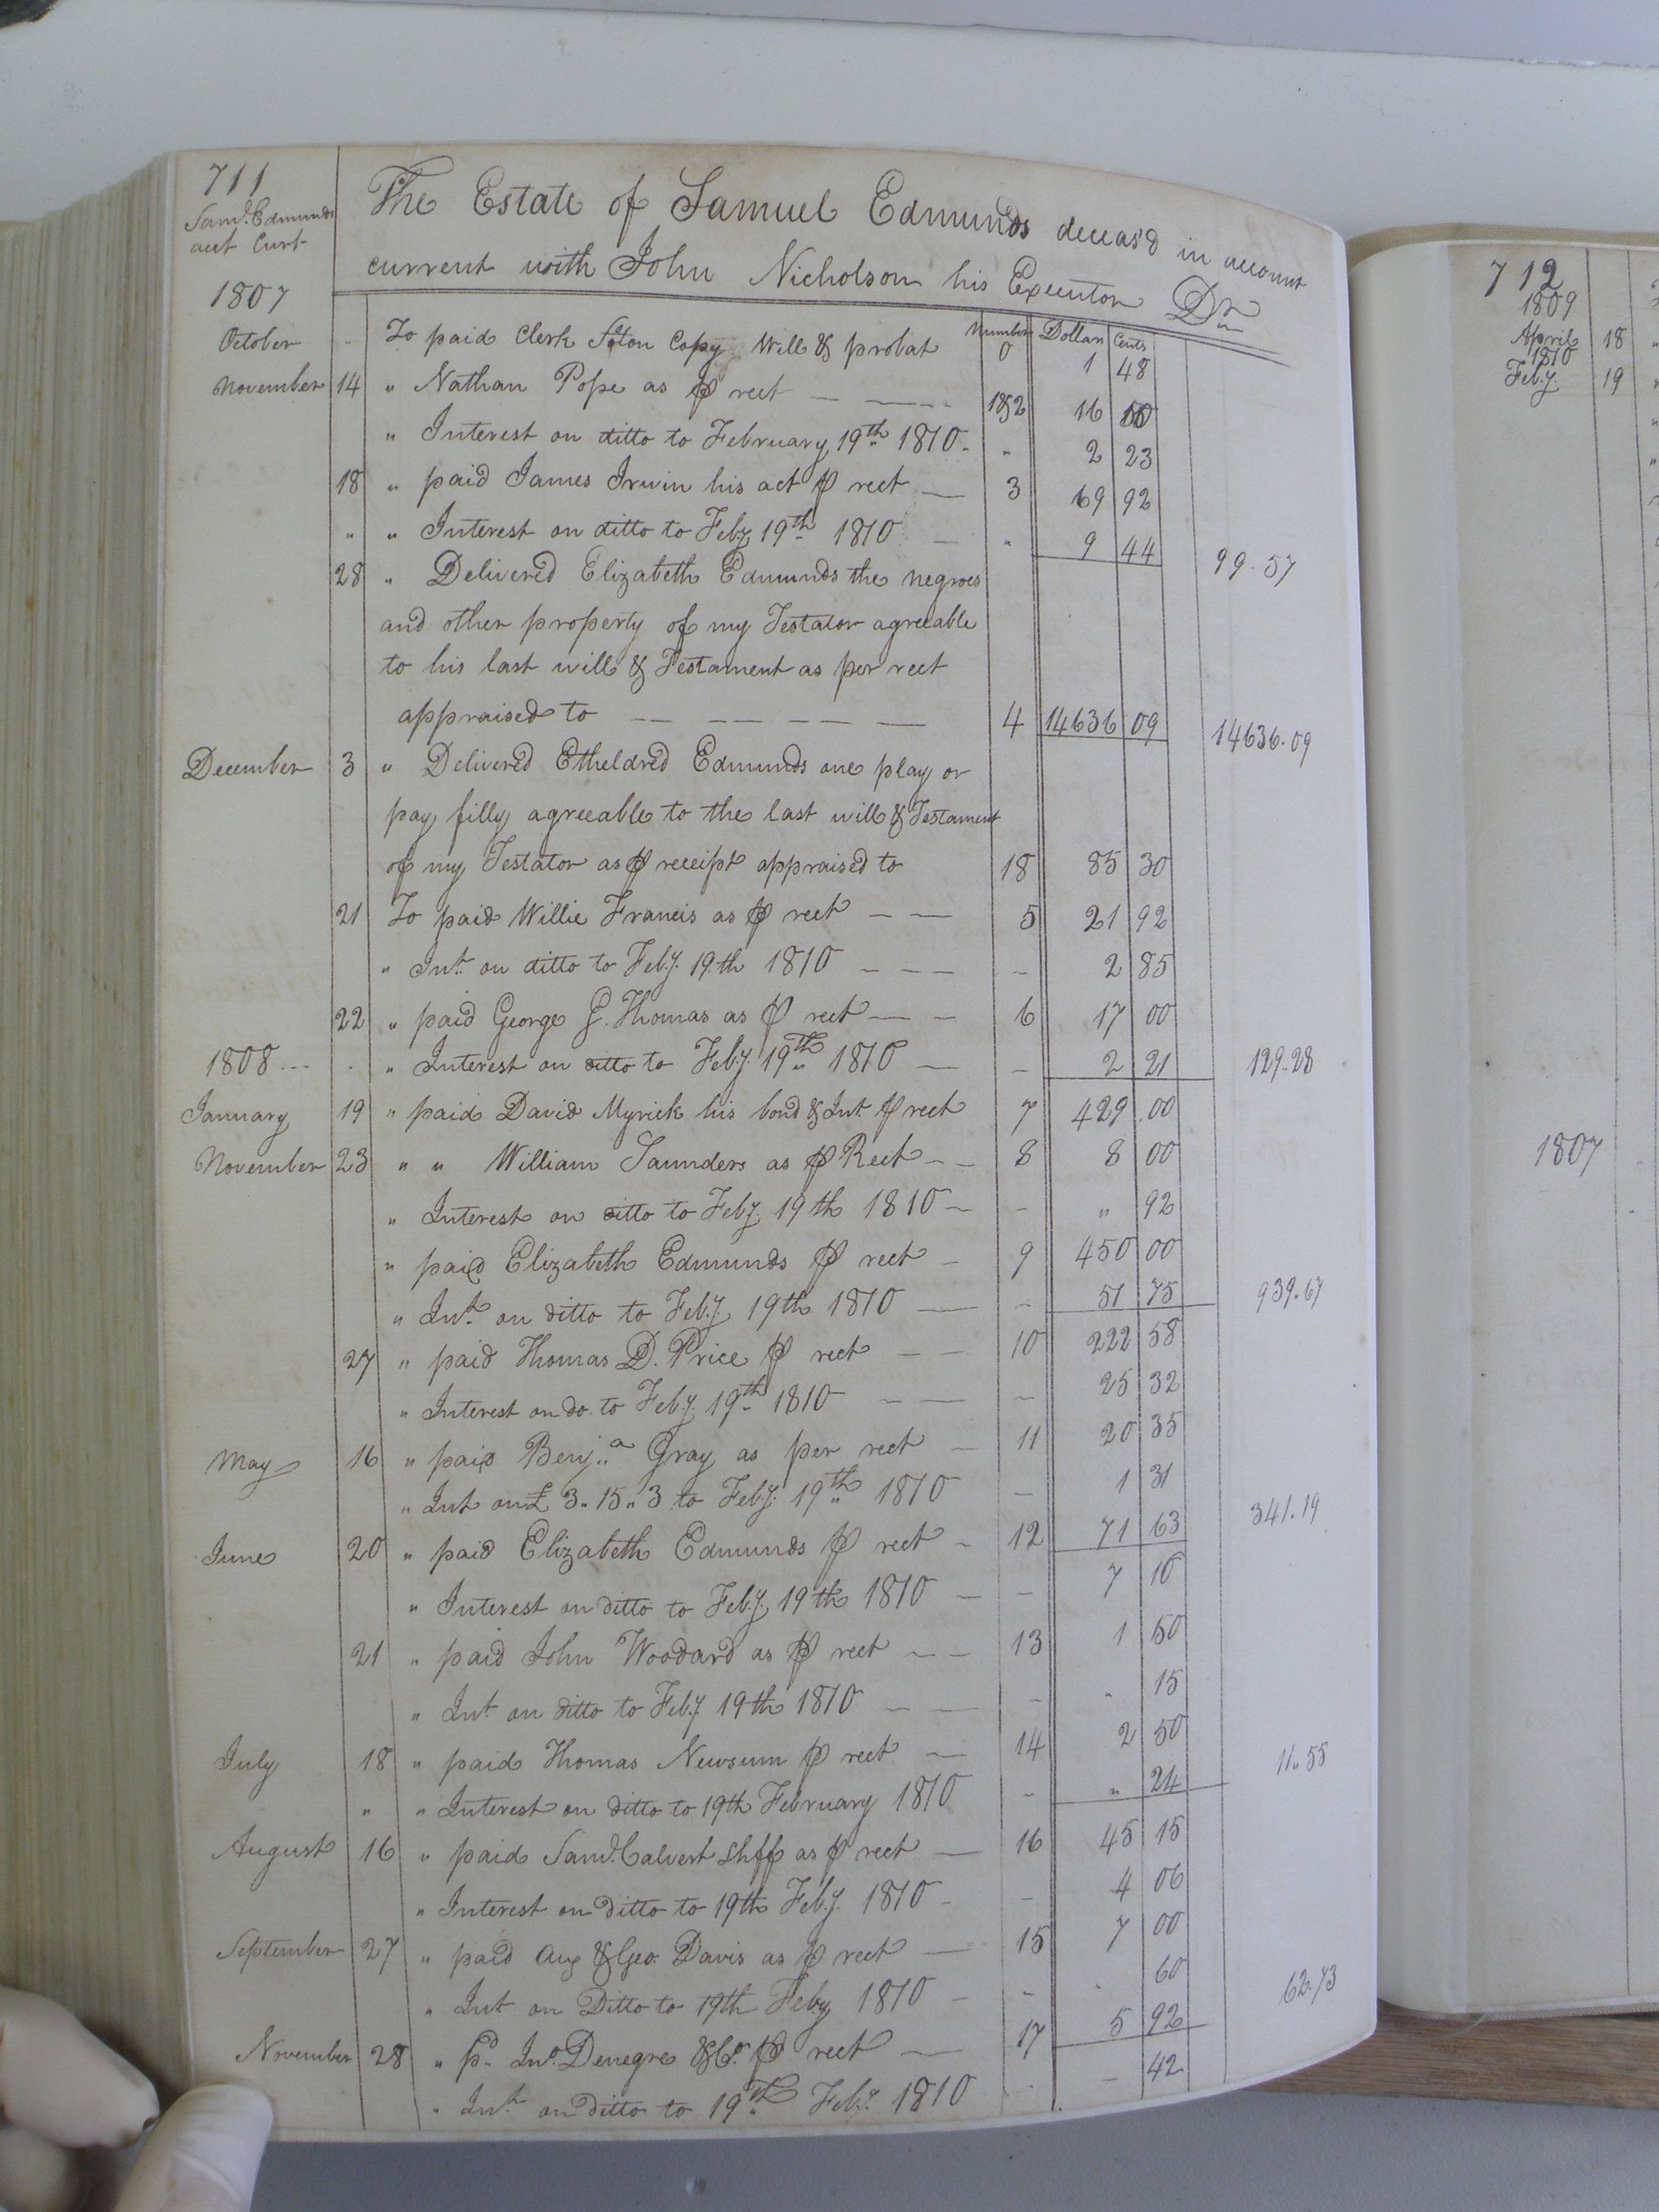 711
Saml. Edmunds
acct Curt
The Estate of Samuel Edmunds deceas'd in account
current with John Nicholson his Executor Dr
1807
Number Dollars Cents
October - To paid Clerk Soton Copy Will & probat 0 1 48
November 14 " Nathan Pope as ⅌ rect — — 1&2 16 50
" Interest on ditto to February 19th 1810 - " 2 23
18 " paid James Irwin his act ⅌ rect — 3 69 92
" " Interest on ditto to Feby 19th 1810 — " 9 44 99.57
28 " Delivered Elizabeth Edmunds the negroes
and other property of my Testator agreeable
to his last will & Testament as per rect
appraised to — — — — 4 14636 09 14636.09
December 3 " Delivered Etheldred Edmunds one play or
pay filly agreeable to the last will & Testament
of my Testator as ⅌ receipt appraised to 18 85 30
21 To paid Willie Francis as ⅌ rect — — 5 21 92
" Int. on ditto to Feby. 19th 1810 — — — - 2 85
22 " paid George G. Thomas as ⅌ rect — — 6 17 00
1808 ... - " Interest on ditto to Feby. 19th 1810 — - 2 21 129.28
January 19 " paid David Myrick his bond & Int ⅌ rect 7 429 00
November 23 " " William Saunders as ⅌ Rect — — 8 8 00
" Interest on ditto to Feby. 19th 1810 — - " 92
" paid Elizabeth Edmunds ⅌ rect — 9 450 00
" Int. on ditto to Feby. 19th 1810 — - 51 75 939.67
27 " paid Thomas D. Price ⅌ rect — — 10 222 58
" Interest on do. to Feby. 19th 1810 — — - 25 32
May 16 " paid Benja Gray as per rect — 11 20 35
" Int on £ 3.. 15.. 3 to Feby. 19th 1810 — 1 31
341.19
June 20 " paid Elizabeth Edmunds ⅌ rect - 12 71 63
" Interest on ditto to Feby. 19th 1810 — - 7 16
21 " paid John Woodard as ⅌ rect — — 13 1 50
" Int. on ditto to Feby. 19th 1810 — — - " 15
July 18 " paid Thomas Newsum ⅌ rect — 14 2 50
" " Interest on ditto to 19th February 1810 - " 24 11..55
August 16 " paid Saml. Calvert Shff as ⅌ rect — 16 45 15
" Interest on ditto to 19th Feby. 1810 - - 4 06
September 27 " paid Aug & Geo. Davis as ⅌ rect — 15 7 00
" Int on Ditto to 19th Feby 1810 - - - 60 62.73
November 28 " pd. Jno. Denegre & Co. ⅌ rect — 17 5 92
" Int. on ditto to 19th Feby. 1810 - - 42
712
1809
April 18 "
1810
Feby. 19
1807